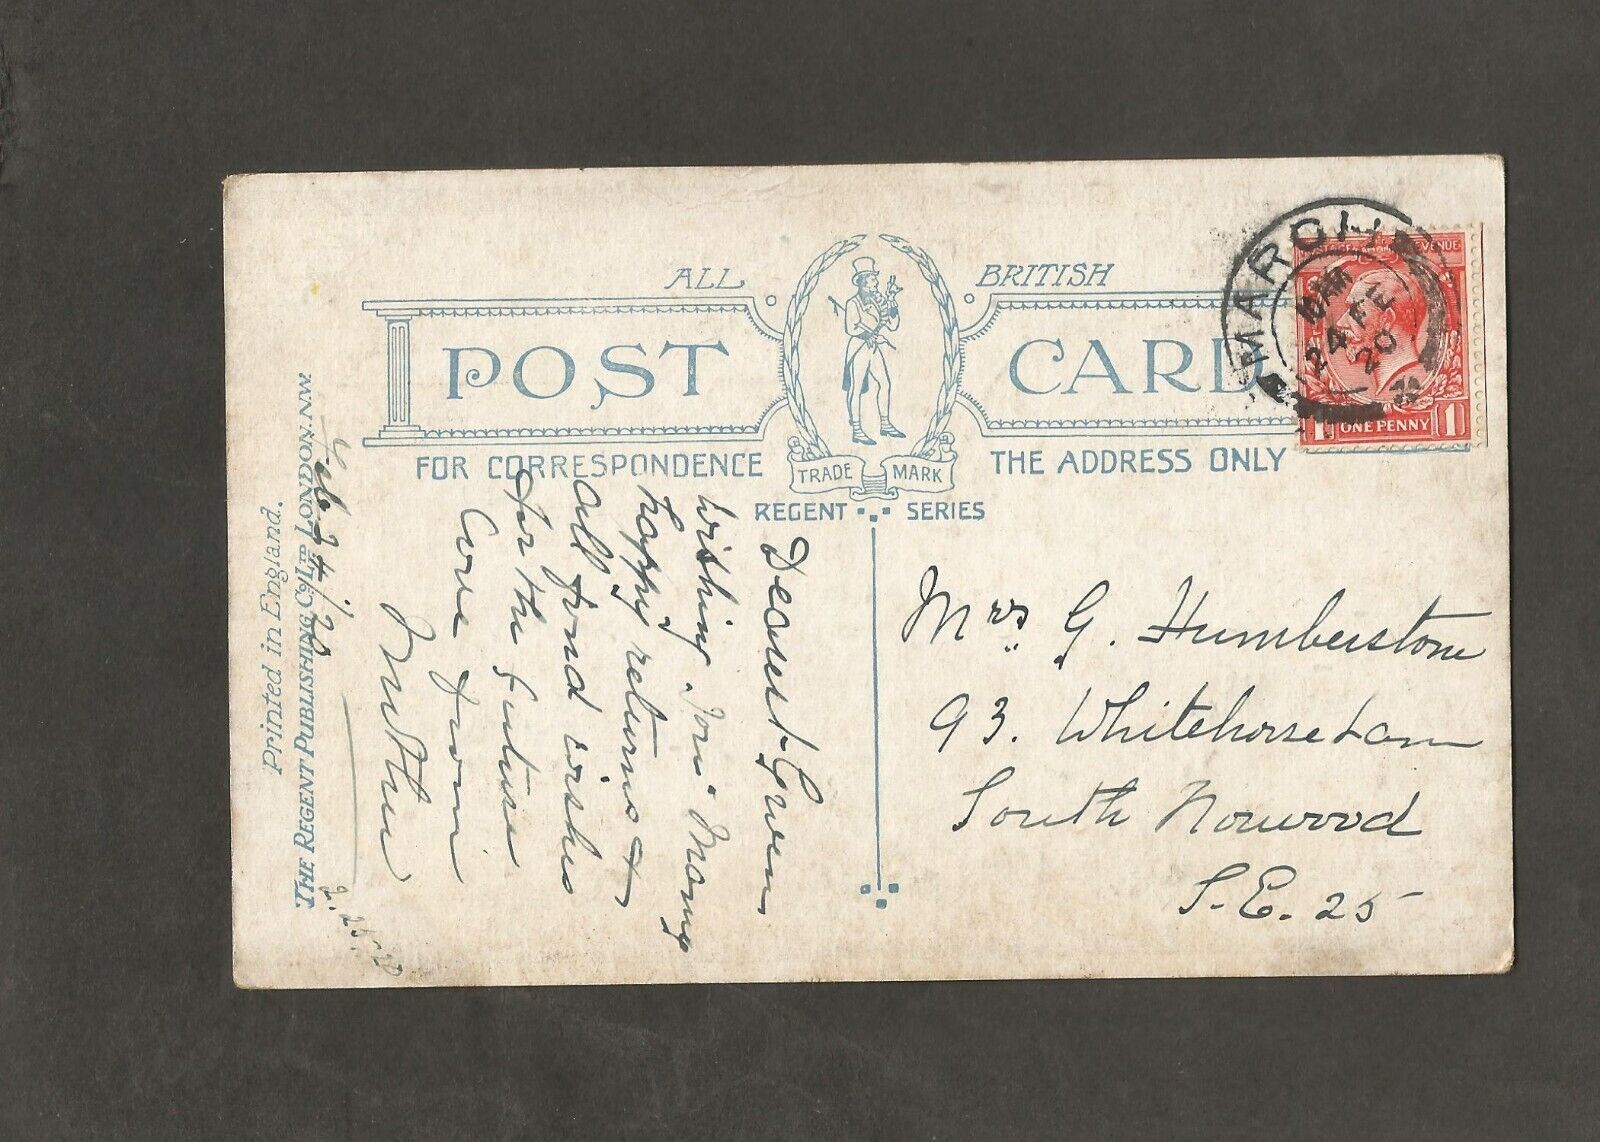 ALL BRITISH
POST CARD
FOR CORRESPONDENCE THE ADDRESS ONLY
TRADE MARK
REGENT SERIES
Printed in England.
THE REGENT PUBLISHING Co Ltd LONDON. N.W.
Feb 24/20
Dearest Gwen
Wishing you Many
happy returns &
all fond wishes
for the future
love from
Mother
2.25.20
Mrs G. Humberstone
93. Whitehorse Lane
South Norwood
S.E. 25
MARCH
10 AM
24 FE
20
POSTAGE REVENUE
1 ONE PENNY 1